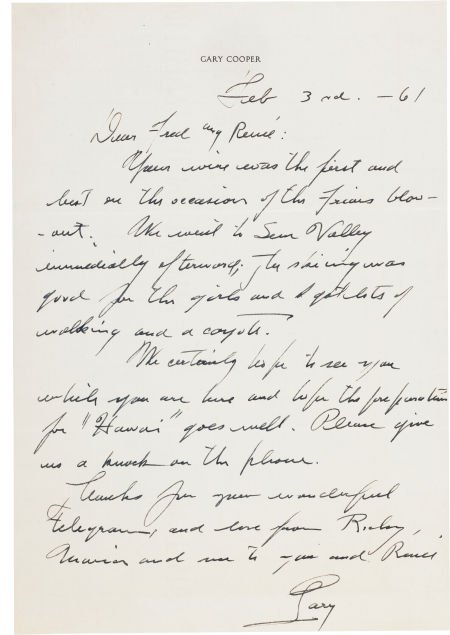 GARY COOPER
Feb 3rd. - 61
Dear Fred and Reneé:
Your wire was the first and
best on the occasion of the Friars blow-
-out. We went to Sun Valley
immediatly afterward. The skiing was
good for the girls and I got lots of
walking and a coyote.
We certainly hope to see you
while you are here and hope the preparation
for "Hawaii" goes well. Please give
us a knock on the phone.
Thanks for your wonderful
telegram, and love from Rocky,
Maria and me to you and Reneé
Gary